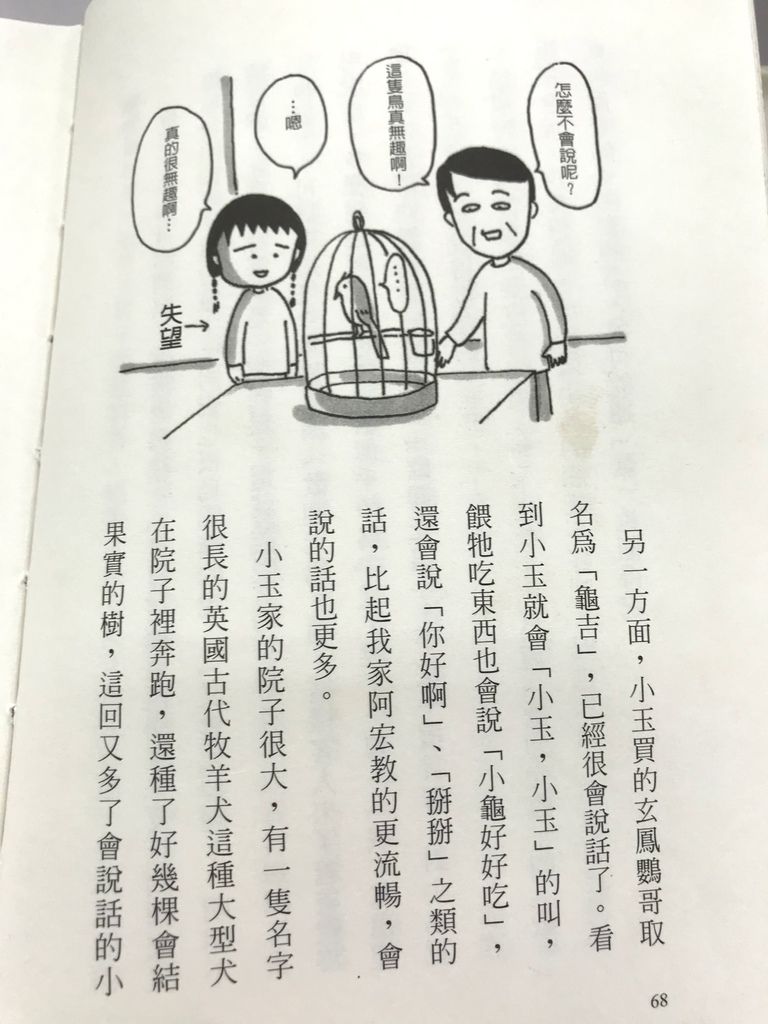 怎麼不會說呢?
這隻鳥真無趣啊!
…嗯
真的很無趣啊…
……
失望→
另一方面，小玉買的玄鳳鸚哥取
名為「龜吉」，已經很會說話了。看
到小玉就會「小玉，小玉」的叫，
餵牠吃東西也會說「小龜好好吃」，
還會說「你好啊」、「掰掰」之類的
話，比起我家阿宏教的更流暢，會
說的話也更多。
小玉家的院子很大，有一隻名字
很長的英國古代牧羊犬這種大型犬
在院子裡奔跑，還種了好幾棵會結
果實的樹，這回又多了會說話的小
68